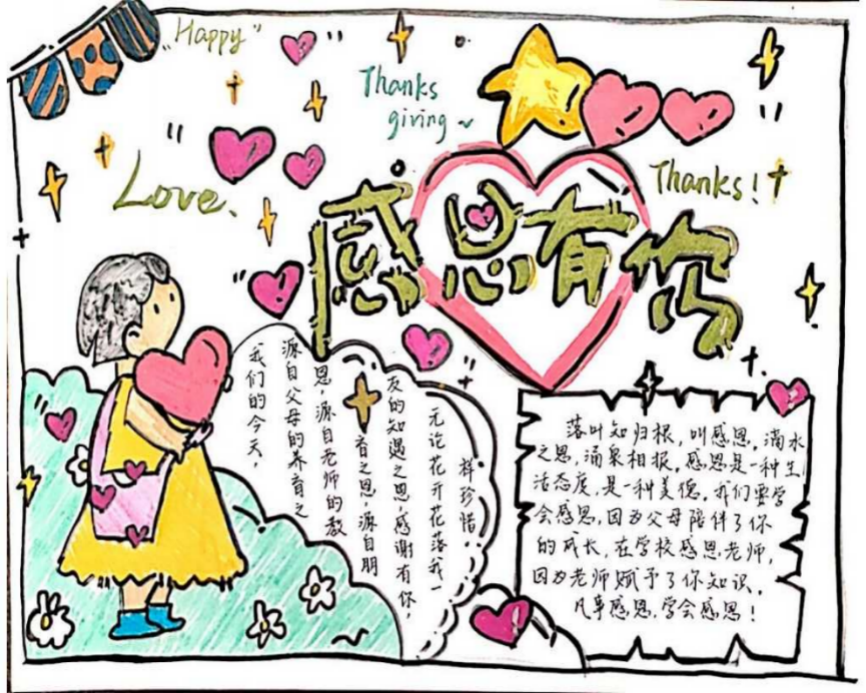 "Happy"
Thanks
giving~
Love.
Thanks!
感恩有你
我们的今天，
源自父母的养育之
恩，源自老师的教
育之恩，源自朋
友的知遇之恩，感谢有你，
无论花开花落我一
样珍惜。
落叶知归根，叫感恩，滴水
之恩，涌泉相报，感恩是一种生
活态度，是一种美德，我们要学
会感恩，因为父母陪伴了你
的成长，在学校感恩老师，
因为老师赋予了你知识，
凡事感恩，学会感恩！